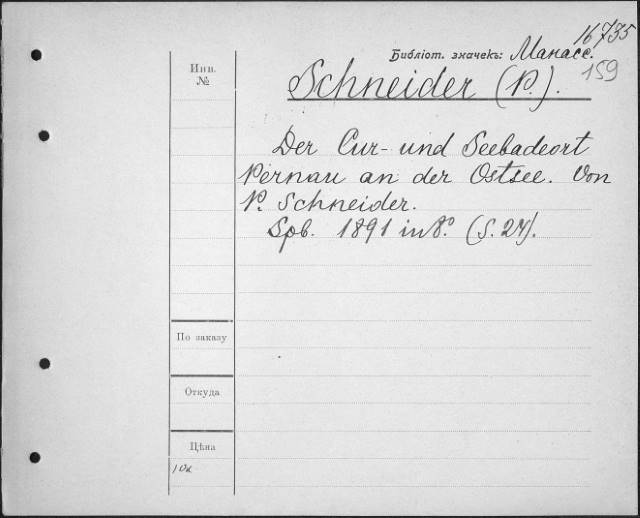 16735
Библіот. значекъ: Манасс.
159
Инв.
№
Schneider (P.).
Der Cur- und Seebadeort
Pernau an der Ostsee. Von
P. Schneider.
Spb. 1891 in 8.° (S. 27).
По заказу
Откуда
Цѣна
10к